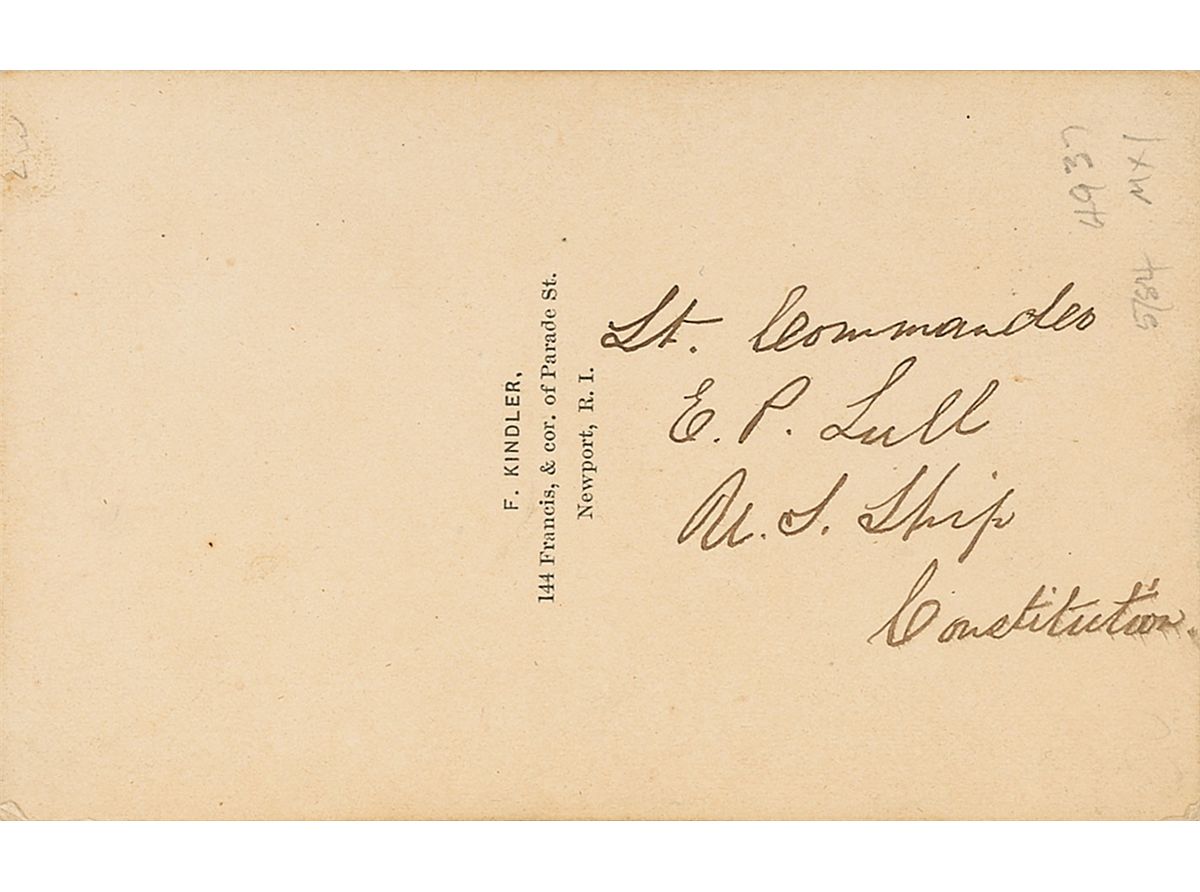 F. KINDLER,
144 Francis, & cor. of Parade St.
Newport, R. I.
Lt. Commander
E. P. Lull
U. S. Ship
Constitution.
4937
5/84 MX1